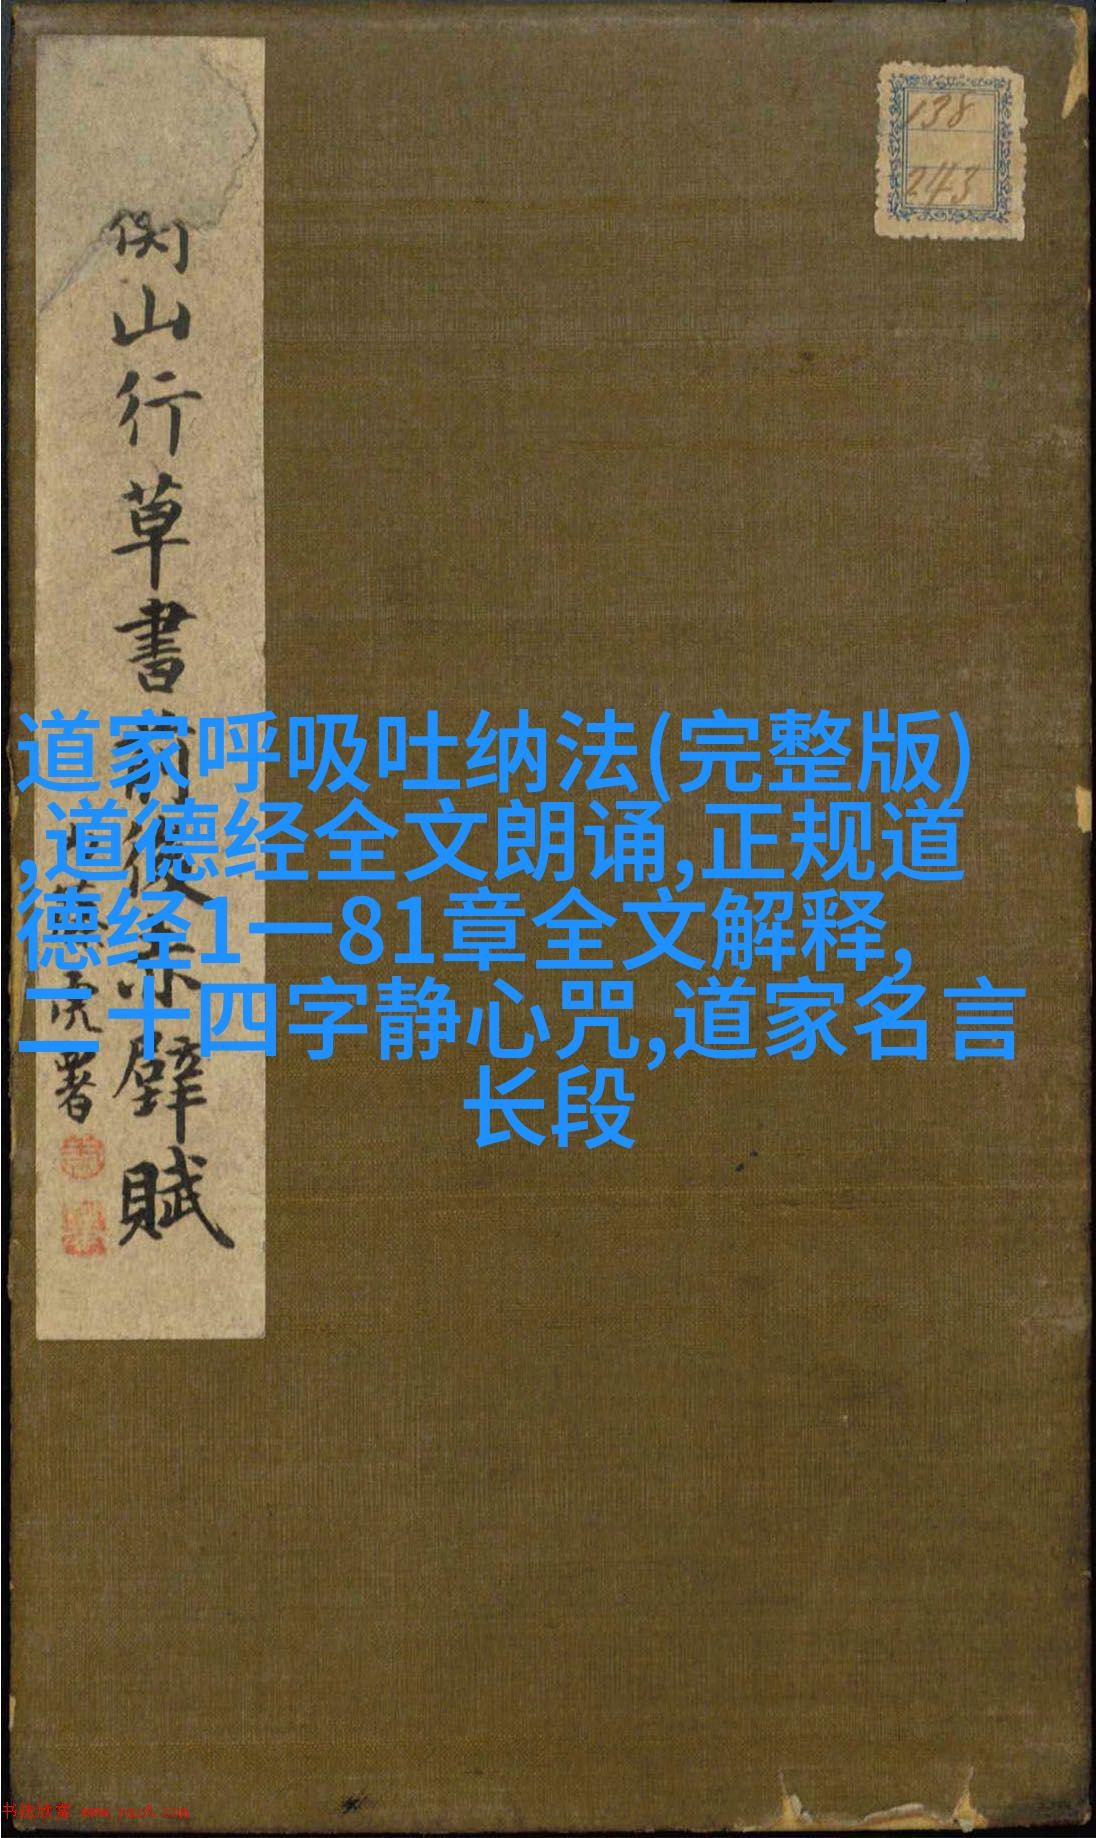 138
243
衡山行草書前後赤壁賦
藤虎署
道家呼吸吐纳法(完整版)
,道德经全文朗诵,正规道
德经1一81章全文解释,
二十四字静心咒,道家名言
长段
书法欣赏 www.yac8.com